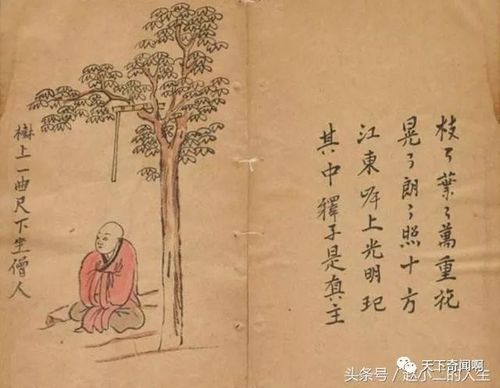 枝々葉々萬重
晃々朗々照十方
江東上光明玘
其中釋子是真主
樹上一曲尺下坐僧人
天下奇闻啊
头条号 / 赵小二的人生